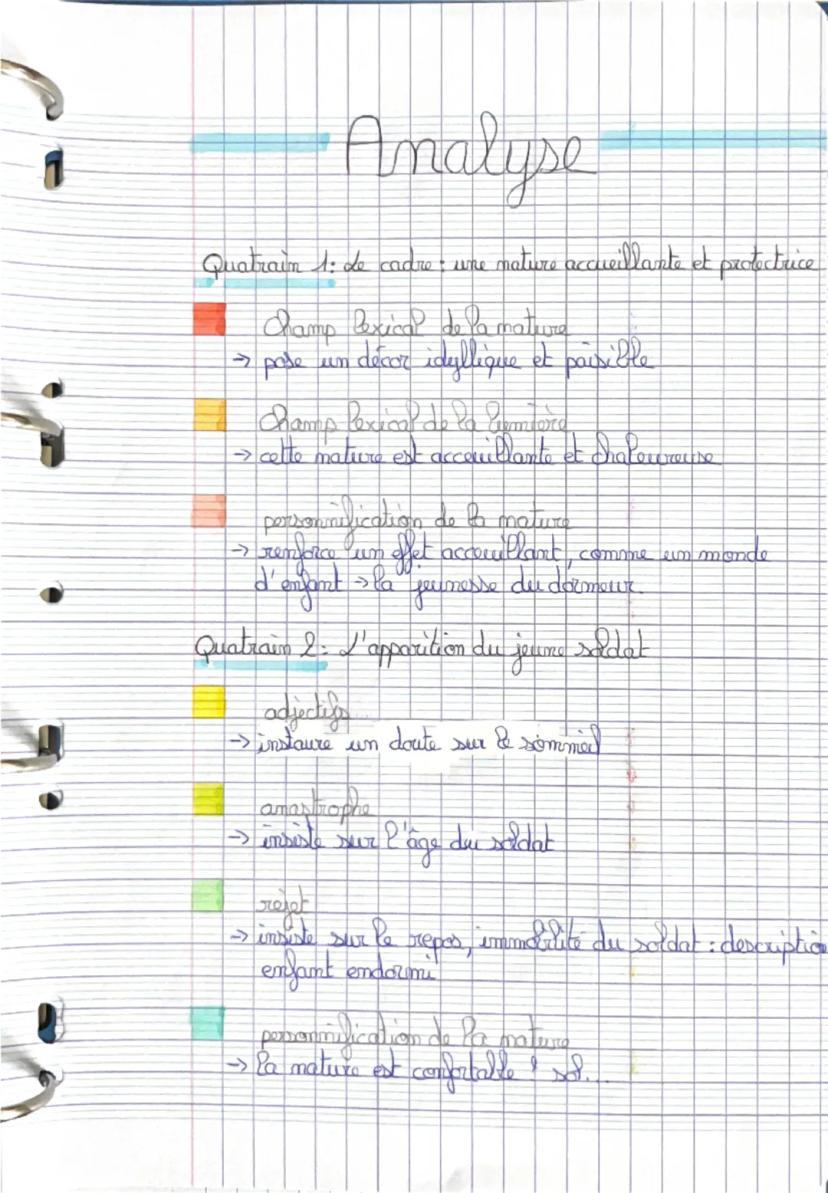 Analyse
Quatrain 1: Le cadre : une nature accueillante et protectrice
Champ lexical de la nature
→ pose un décor idyllique et paisible
Champ lexical de la lumière
→ cette nature est accueillante et chaleureuse
personnification de la nature
→ renforce un effet accueillant, comme un monde
d'enfant → la jeunesse du dormeur.
Quatrain 2: L'apparition du jeune soldat
adjectifs
→ instaure un doute sur le sommeil
anastrophe
→ insiste sur l'âge du soldat
rejet
→ insiste sur le repos, immobilité du soldat : description
enfant endormi
personnification de la nature
→ la nature est confortable sol...